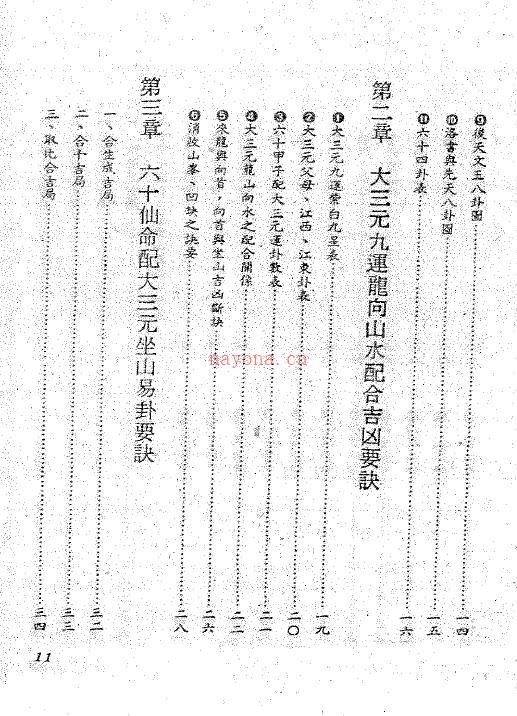 ❾後天文王八卦圖……一四
❿洛書與先天八卦圖……一五
⓫六十四卦表……一六
第二章 大三元九運龍向山水配合吉凶要訣
❶大三元九運紫白九星表……一九
❷大三元父母、江西、江東卦表……二〇
❸六十甲子配大三元運卦數表……二一
❹大三元龍山向水之配合關係……二二
❺來龍與向首，向首與坐山吉凶斷訣……二六
❻消砂山峯、凹缺之訣要……二八
第三章 六十仙命配大三元坐山易卦要訣
一、合生成吉局……三二
二、合十吉局……三三
三、取比合吉局……三四
11
nayona.cn